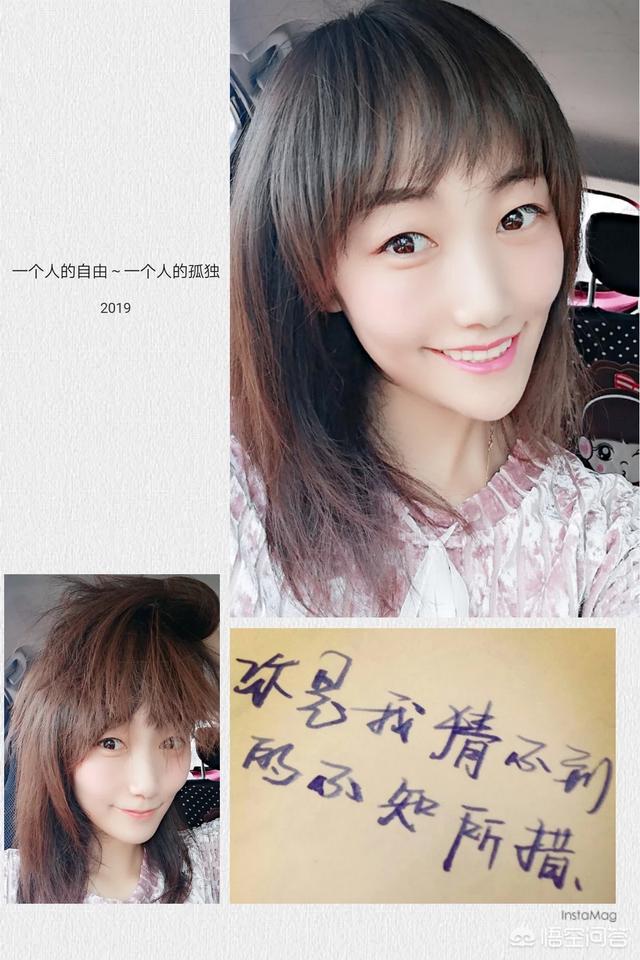 一个人的自由～一个人的孤独
2019
你是我猜不到
的不知所措、
InstaMag
悟空问答